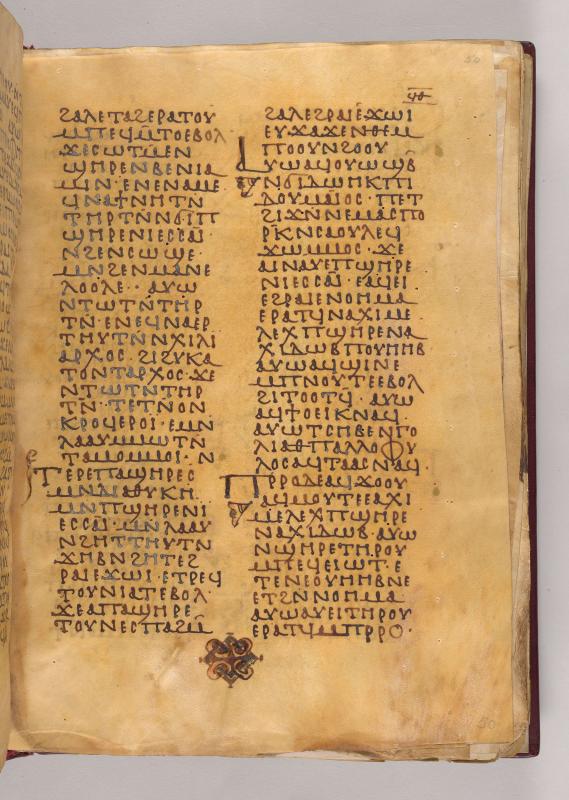 ϥⲑ
50
ϩⲁⲗⲉⲧⲁϩⲉⲣⲁⲧⲟⲩ
ⲙⲡⲉϥⲙ̅ⲧⲟⲉⲃⲟⲗ
ϫⲉⲥⲱⲧⲙ̅ⲉⲛ
ϣⲏⲣⲉⲛⲃⲉⲛⲓⲁ
ⲙⲓⲛ· ⲉⲛⲉⲛⲁⲙⲉ
ϥⲛⲁϯⲛⲏⲧⲛ̅
ⲧⲏⲣⲧⲛ̅ⲛϭⲓⲡ
ϣⲏⲣⲉⲛⲓⲉⲥⲥⲁⲓ·
ⲛϩⲉⲛⲥⲱϣⲉ·
ⲙⲛϩⲉⲛⲙⲁⲛⲉ
ⲗⲟⲟⲗⲉ·· ⲁⲩⲱ
ⲛⲧⲱⲧⲛ̅ⲧⲏⲣ
ⲧⲛ̅· ⲉⲛⲉϥⲛⲁⲉⲣ
ⲧⲏⲩⲧⲛ̅ⲛⲭⲓⲗⲓ
ⲁⲣⲭⲟⲥ· ϩⲓϩⲩⲕⲁ
ⲧⲟⲛⲧⲁⲣⲭⲟⲥ· ϫⲉ
ⲛⲧⲱⲧⲛⲧⲏⲣ
ⲧⲛ̅· ⲧⲉⲧⲛⲟⲛ
ⲕⲣⲟϥⲉⲣⲟⲓ· ⲉⲙⲛ
ⲗⲁⲁⲩⲙⲙⲱⲧⲛ̅
ⲧⲁⲙⲟⲙⲙⲟⲓ· ⲛ
ⲧⲉⲣⲉⲡⲁϣⲏⲣⲉⲥ
ⲙⲛⲇⲓⲁⲑⲩⲕⲏ
ⲙⲛⲡϣⲏⲣⲉⲛⲓ
ⲉⲥⲥⲁⲓ· ⲙⲛ̅ⲗⲁⲁⲩ
ⲛϩⲏⲧⲧⲏⲩⲧⲛ
ϫⲏⲃⲛϩⲏⲧⲉϩ
ⲣⲁⲓⲉϫⲱⲓ· ⲉⲧⲣⲉϥ
ⲧⲟⲩⲛⲓⲁⲧⲉⲃⲟⲗ·
ϫⲉⲁⲡⲁϣⲏⲣⲉ
ⲧⲟⲩⲛⲉⲥⲡⲁϩⲙ̅
ϩⲁⲗⲉϩⲣⲁⲓⲉϫⲱⲓ
ⲉⲩϫⲁϫⲉⲛⲑⲉⲙ
ⲡⲟⲟⲩⲛϩⲟⲟⲩ
ⲁⲩⲱⲁϥⲟⲩⲱϣⲃ̅
ⲛϭⲓⲇⲱⲏⲕⲡⲓ
ⲇⲟⲩⲙⲁⲓⲟⲥ· ⲡⲉⲧ
ϩⲓϫⲛⲛⲉⲙⲁⲥⲡⲟ
ⲣⲕⲛⲥⲁⲟⲩⲗⲉϥ
ϫⲱⲙⲙⲟⲥ· ϫⲉ
ⲁⲓⲛⲁⲩⲉⲡϣⲏⲣⲉ
ⲛⲓⲉⲥⲥⲁⲓ· ⲉⲁϥⲉⲓ
ⲉϩⲣⲁⲓⲉⲛⲟⲙⲙⲁ
ⲉⲣⲁⲧϥⲛⲁⲭⲓⲙⲉ
ⲗⲉⲭⲡϣⲏⲣⲉⲛⲁ
ⲭⲓⲇⲱⲃⲡⲟⲩⲏⲏⲃ
ⲁⲩⲱⲁϥϣⲓⲛⲉ
ⲙⲡⲛⲟⲩⲧⲉⲉⲃⲟⲗ
ϩⲓⲧⲟⲟⲧϥ· ⲁⲩⲱ
ⲁϥϯⲟⲉⲓⲕⲛⲁϥ·
ⲁⲩⲱⲧⲥⲏⲃⲉⲛⲅⲟ
ⲗⲓⲁⲑⲡⲁⲗⲗⲟⲫⲩ
ⲗⲟⲥⲁϥⲧⲁⲁⲥⲛⲁϥ
ⲡⲣⲣⲟⲇⲉⲁϥϫⲟⲟⲩ
ⲁϥⲙⲟⲩⲧⲉⲉⲁⲭⲓ
ⲙⲉⲗⲉⲭⲡϣⲏⲣⲉ
ⲛⲁⲭⲓⲇⲱⲃ· ⲁⲩⲱ
ⲛϣⲏⲣⲉⲧⲏⲣⲟⲩ
ⲙⲡⲉϥⲉⲓⲱⲧ· ⲉ
ⲧⲉⲛⲉⲟⲩⲏⲏⲃⲛⲉ
ⲉⲧϩⲛⲛⲟⲙⲙⲁ
ⲁⲩⲱⲁⲩⲉⲓⲧⲏⲣⲟⲩ
ⲉⲣⲁⲧϥⲙⲡⲣⲣⲟ·
50